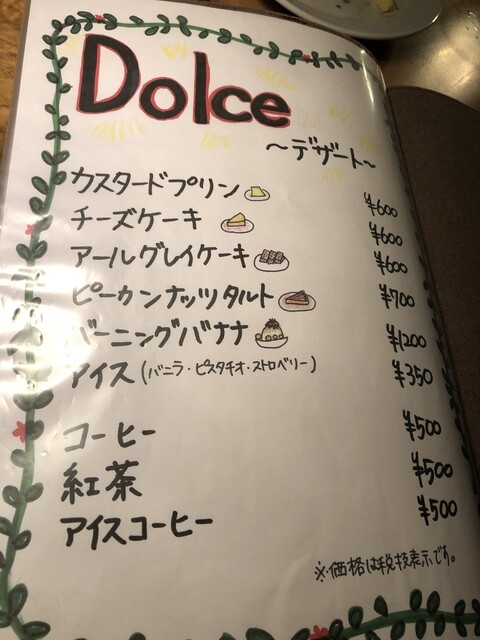 Dolce
〜デザート〜
カスタードプリン ¥600
チーズケーキ ¥600
アールグレイケーキ ¥600
ピーカンナッツタルト ¥700
バーニングバナナ ¥1200
アイス(バニラ・ピスタチオ・ストロベリー) ¥350
コーヒー ¥500
紅茶 ¥500
アイスコーヒー ¥500
※価格は税抜表示です。